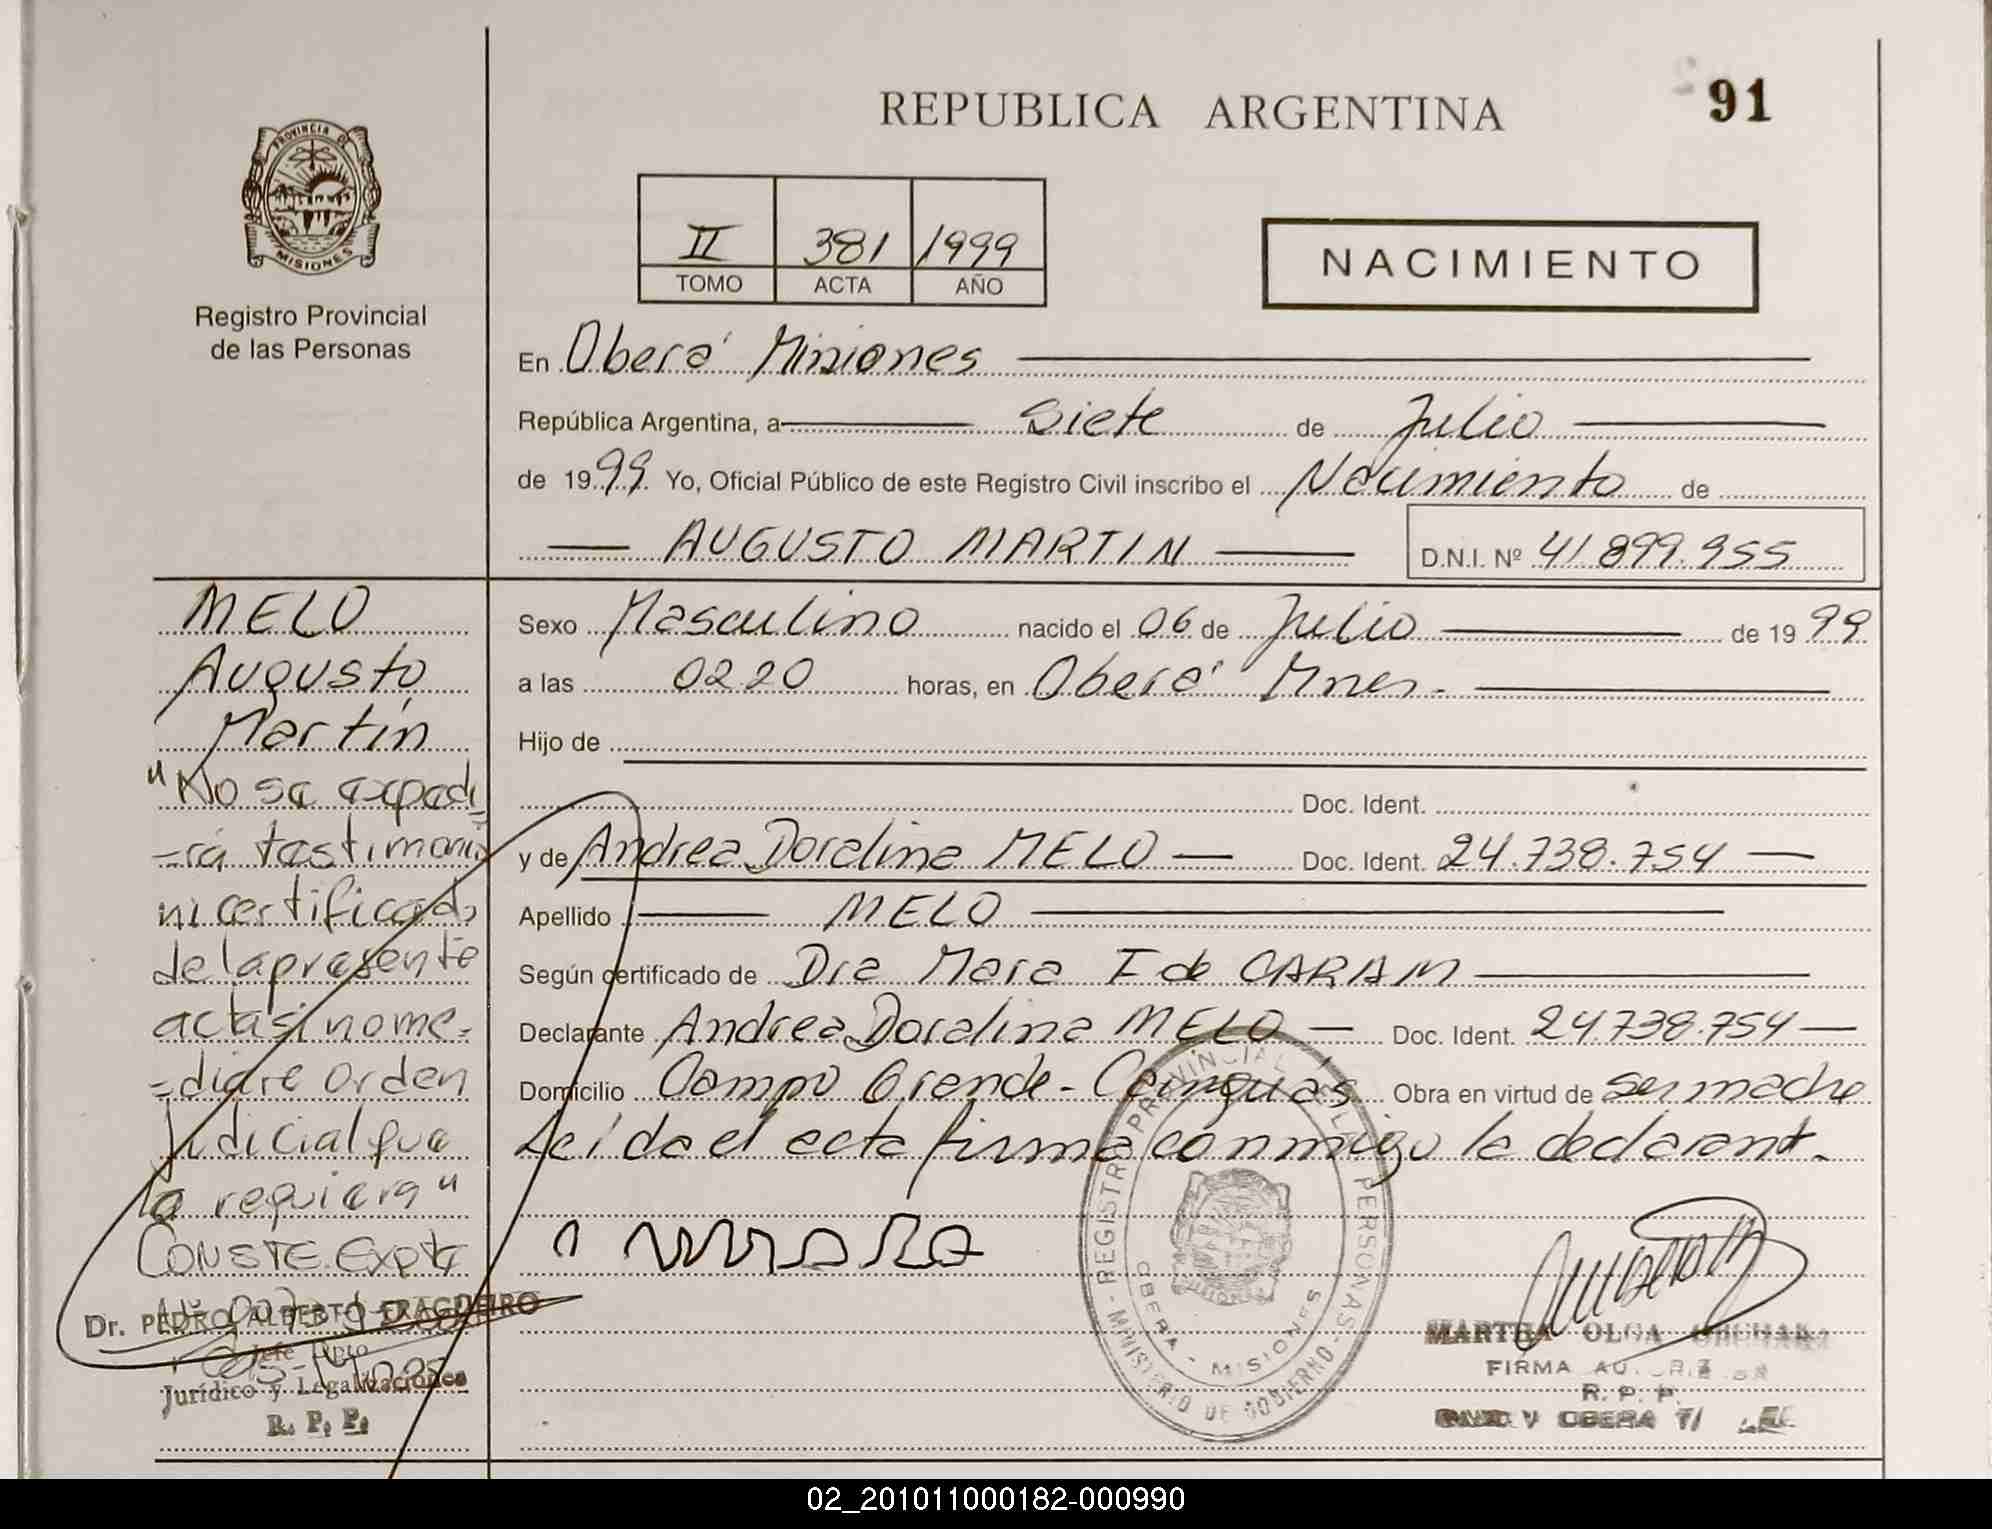 REPUBLICA ARGENTINA
91
PROVINCIA DE
MISIONES
Registro Provincial
de las Personas
II 381 1999
TOMO ACTA AÑO
NACIMIENTO
En Oberá Misiones
República Argentina, a Siete de Julio
de 1999 Yo, Oficial Público de este Registro Civil inscribo el Nacimiento de
AUGUSTO MARTIN D.N.I. Nº 41.899.955
Sexo Masculino nacido el 06 de Julio de 1999
a las 0220 horas, en Oberá Mnes.
Hijo de
Doc. Ident.
y de Andrea Doralina MELO Doc. Ident. 24.738.754
Apellido MELO
Según certificado de Dra Mara F de CARAM
Declarante Andrea Doralina MELO Doc. Ident. 24.738.754
Domicilio Campo Grande - Cainguas Obra en virtud de ser madre
Leída el acta firma conmigo la declarant.
MELO
Augusto
Martín
"No se expedi
=rá testimonio
ni certificado
de la presente
acta si no me=
=diare orden
judicial que
la requiera"
CONSTE. Expte
Dr. PEDRO ALBERTO FRAGUEIRO
Jefe Dpto
Jurídico y Legalizaciones
R. P. P.
REGISTRO PROVINCIAL DE LAS PERSONAS
MINISTERIO DE GOBIERNO
OBERA - MISIONES
MARTHA OLGA
FIRMA AUTORIZADA
R. P. P.
OBERA
02_201011000182-000990